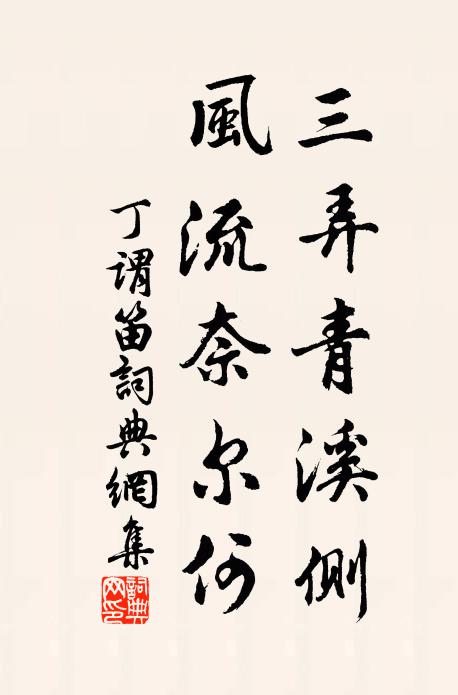 三弄青溪側
風流奈尔何
丁謂笛詞典網集
詞典网印